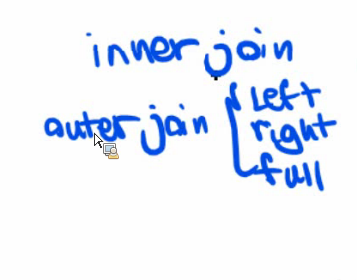 inner join
outer join { left
right
full